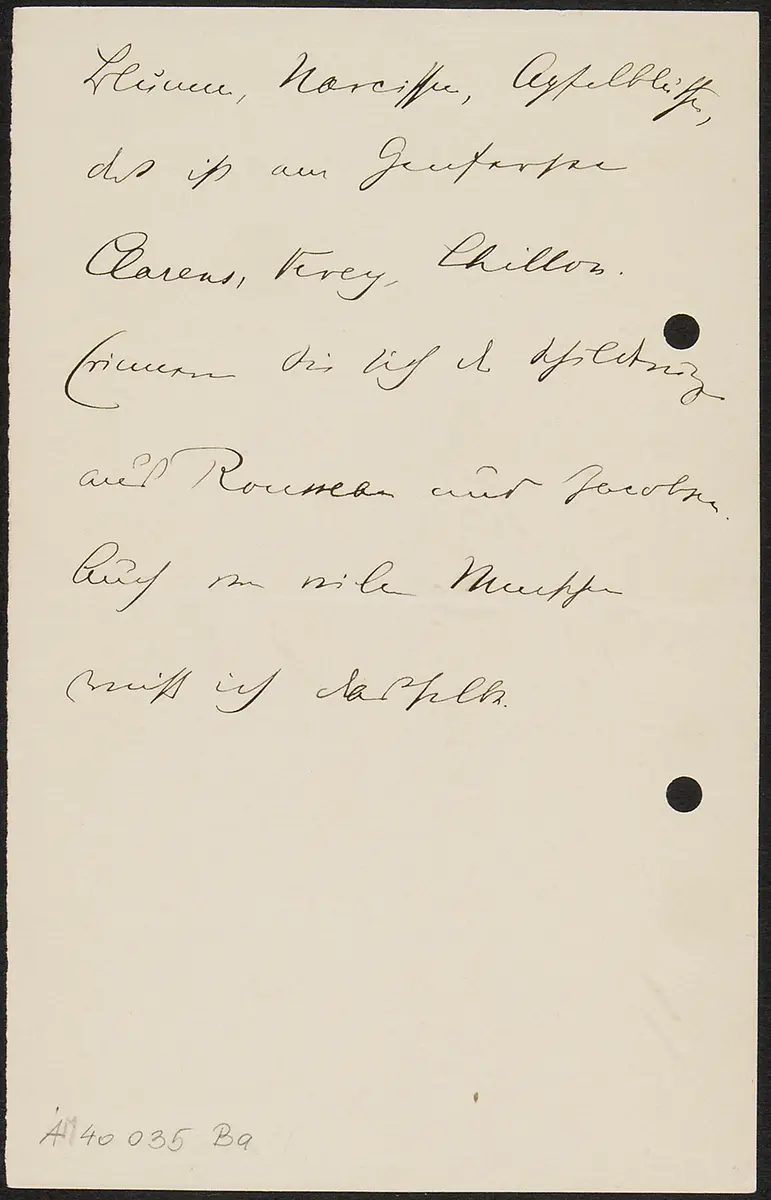 Blumen, Narcissen, Apfelblüthen,
das ist am Genfersee
Clarens, Vevey, Chillon.
Erinnern Sie sich der Schilderung
aus Rousseau und Jacobsen.
Auch von vielen Menschen
weiß ich dasselbe.
A 40 035 Ba